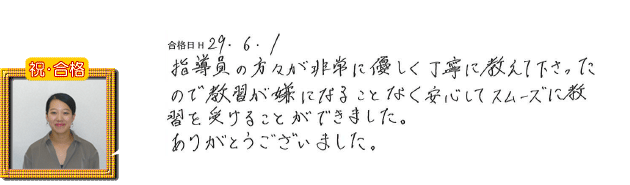 祝・合格
合格日 H 29. 6. 1
指導員の方々が非常に優しく丁寧に教えて下さった
ので教習が嫌になることなく安心してスムーズに教
習を受けることができました。
ありがとうございました。